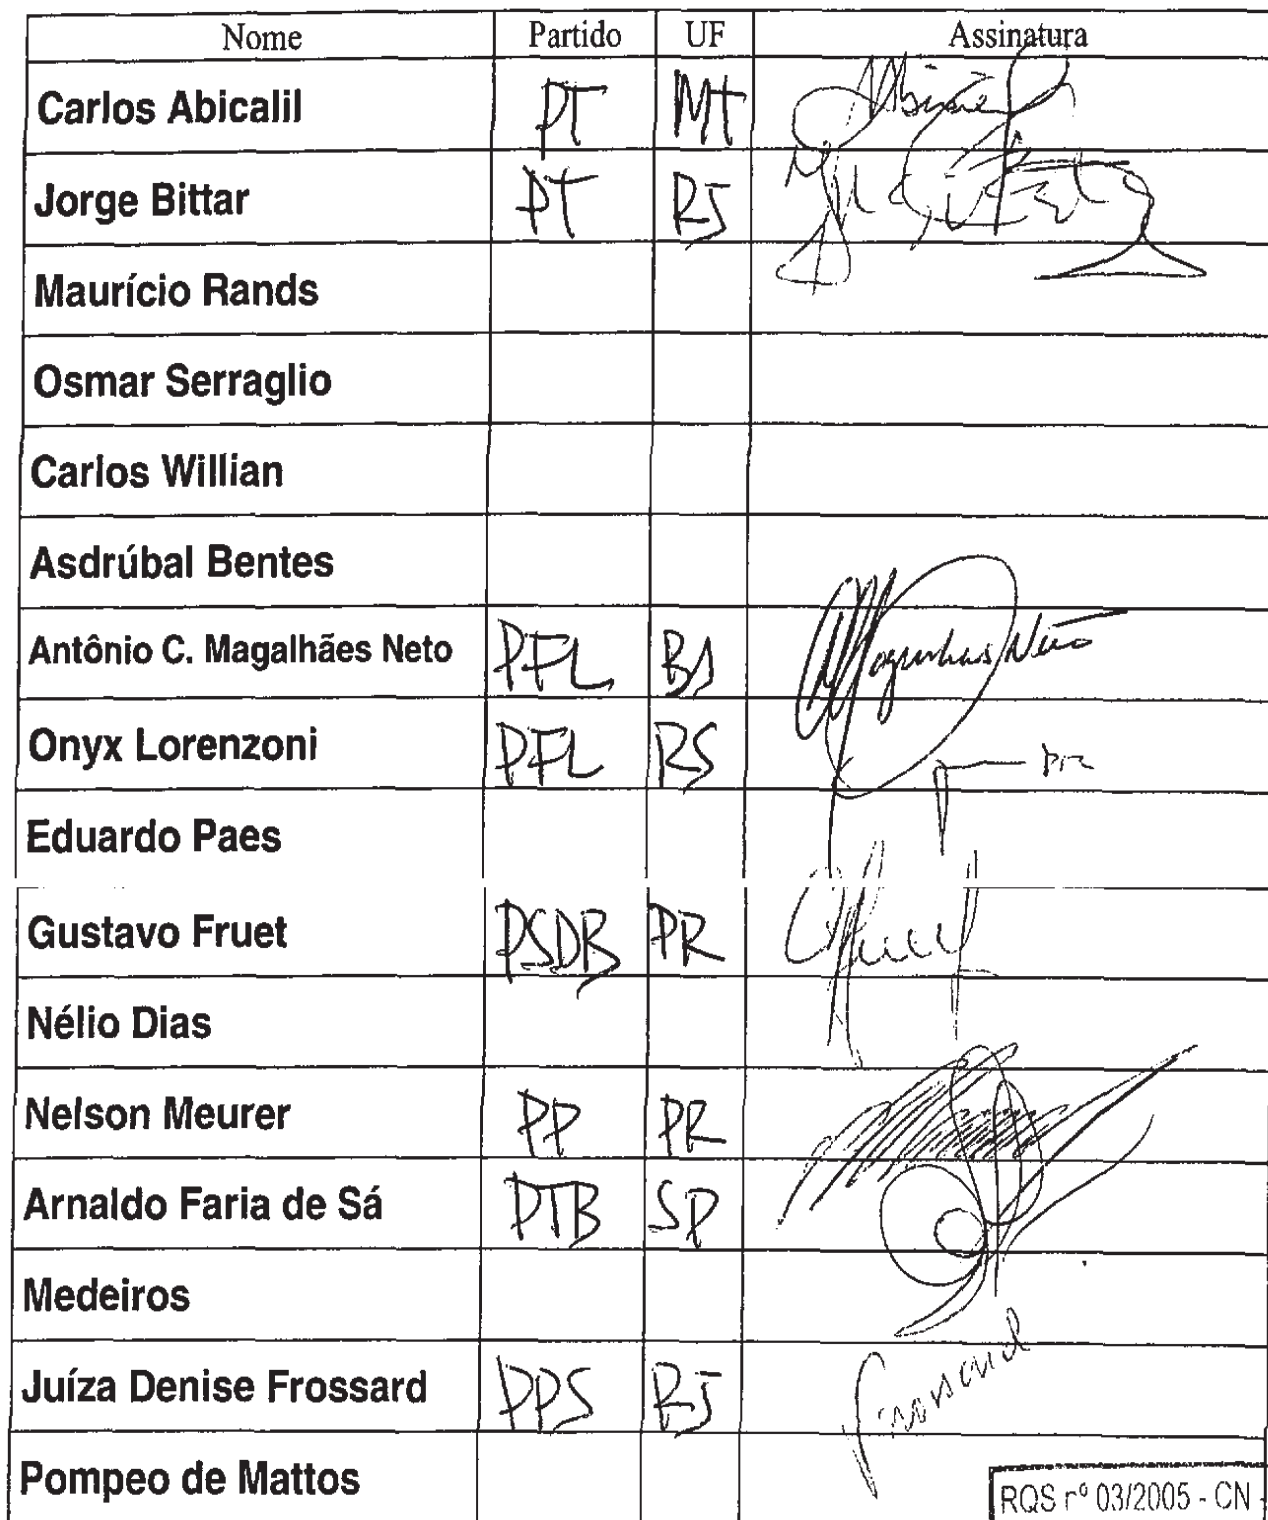 Nome Partido UF Assinatura
Carlos Abicalil PT MT
Jorge Bittar PT RJ
Maurício Rands
Osmar Serraglio
Carlos Willian
Asdrúbal Bentes
Antônio C. Magalhães Neto PFL BA Magalhães Neto
Onyx Lorenzoni PFL RS
Eduardo Paes
Gustavo Fruet PSDB PR Fruet
Nélio Dias
Nelson Meurer PP PR
Arnaldo Faria de Sá PTB SP
Medeiros
Juíza Denise Frossard PPS RJ Frossard
Pompeo de Mattos
RQS nº 03/2005 - CN -